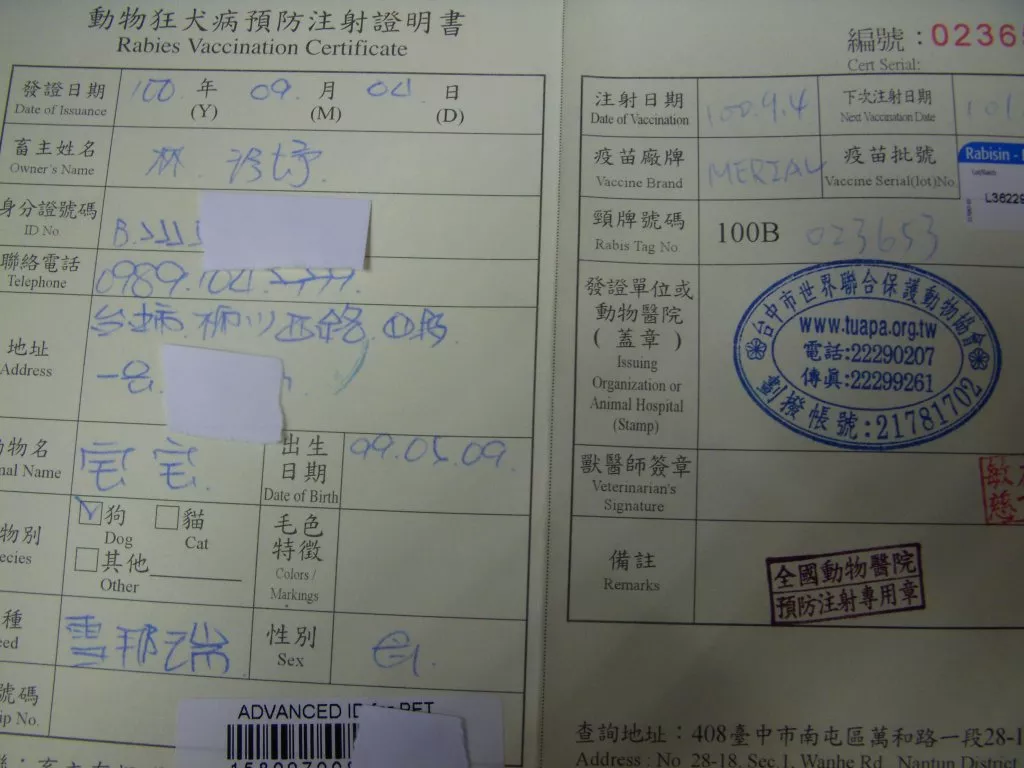 動物狂犬病預防注射證明書
Rabies Vaccination Certificate
發證日期 100 年 09 月 04 日
Date of Issuance (Y) (M) (D)
畜主姓名 林
Owner's Name
身分證號碼
ID No
聯絡電話
Telephone
地址
Address
動物名 宝宝
nal Name
出生
日期
Date of Birth
99.05.09.
物別
ecies
狗
Dog
貓
Cat
其他
Other
毛色
特徵
Colors /
Markings
種 雪那瑞
eed
性別
Sex
號碼
ip No.
ADVANCED ID for PET
編號:0236
Cert Serial:
注射日期 100.9.4
Date of Vaccination
下次注射日期 101.
Next Vaccination Date
疫苗廠牌 MERIAL
Vaccine Brand
疫苗批號
Vaccine Serial(lot)No.
Rabisin -
L36229
頸牌號碼 100B 023653
Rabis Tag No
發證單位或
動物醫院
(蓋章)
Issuing
Organization or
Animal Hospital
(Stamp)
台中市世界聯合保護動物協會
www.tuapa.org.tw
電話:22290207
傳真:22299261
劃撥帳號:21781702
獸醫師簽章
Veterinarian's
Signature
備註
Remarks
全國動物醫院
預防注射專用章
查詢地址:408臺中市南屯區萬和路一段28-1
Address : No 28-18, Sec.1, Wanhe Rd., Nantun District